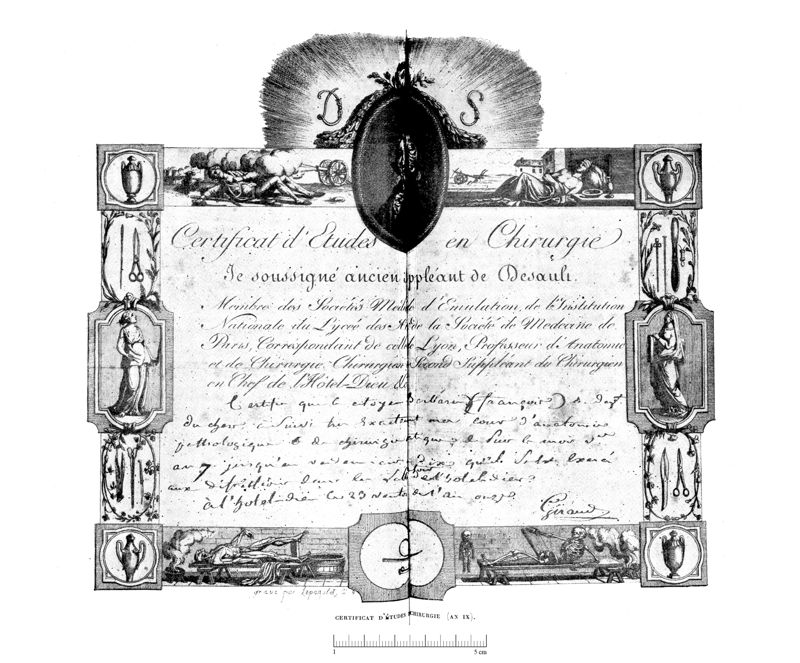 D S
Certificat d'Etudes en Chirurgie
Je soussigné ancien ppléant de Desault.
Membre des Sociétés Méd d'Emulation, de l'Institution
Nationale du Lycée des A de la Société de Médecine de
Paris, Correspondant de cel Lyon, Professeur d'Anatomie
et de Chirurgie, Chirurgien Second Suppléant du Chirurgien
en Chef de l'Hôtel-Dieu &c
Certifie que le citoyen Barbare (françois) du dept
du cher a suivi très exactement mon cour d'anatomie
pathologique & de chirurgie pratique depuis le mois
an 7 jusqu'en vendemiaire qu'il s'est exercé
aux dissections dans les de l'hotel-dieu
à l'hotel-dieu ce 23 ventose l'an
Giraud
gravé par
CERTIFICAT D'ÉTUDES CHIRURGIE (AN IX).
1 5 cm